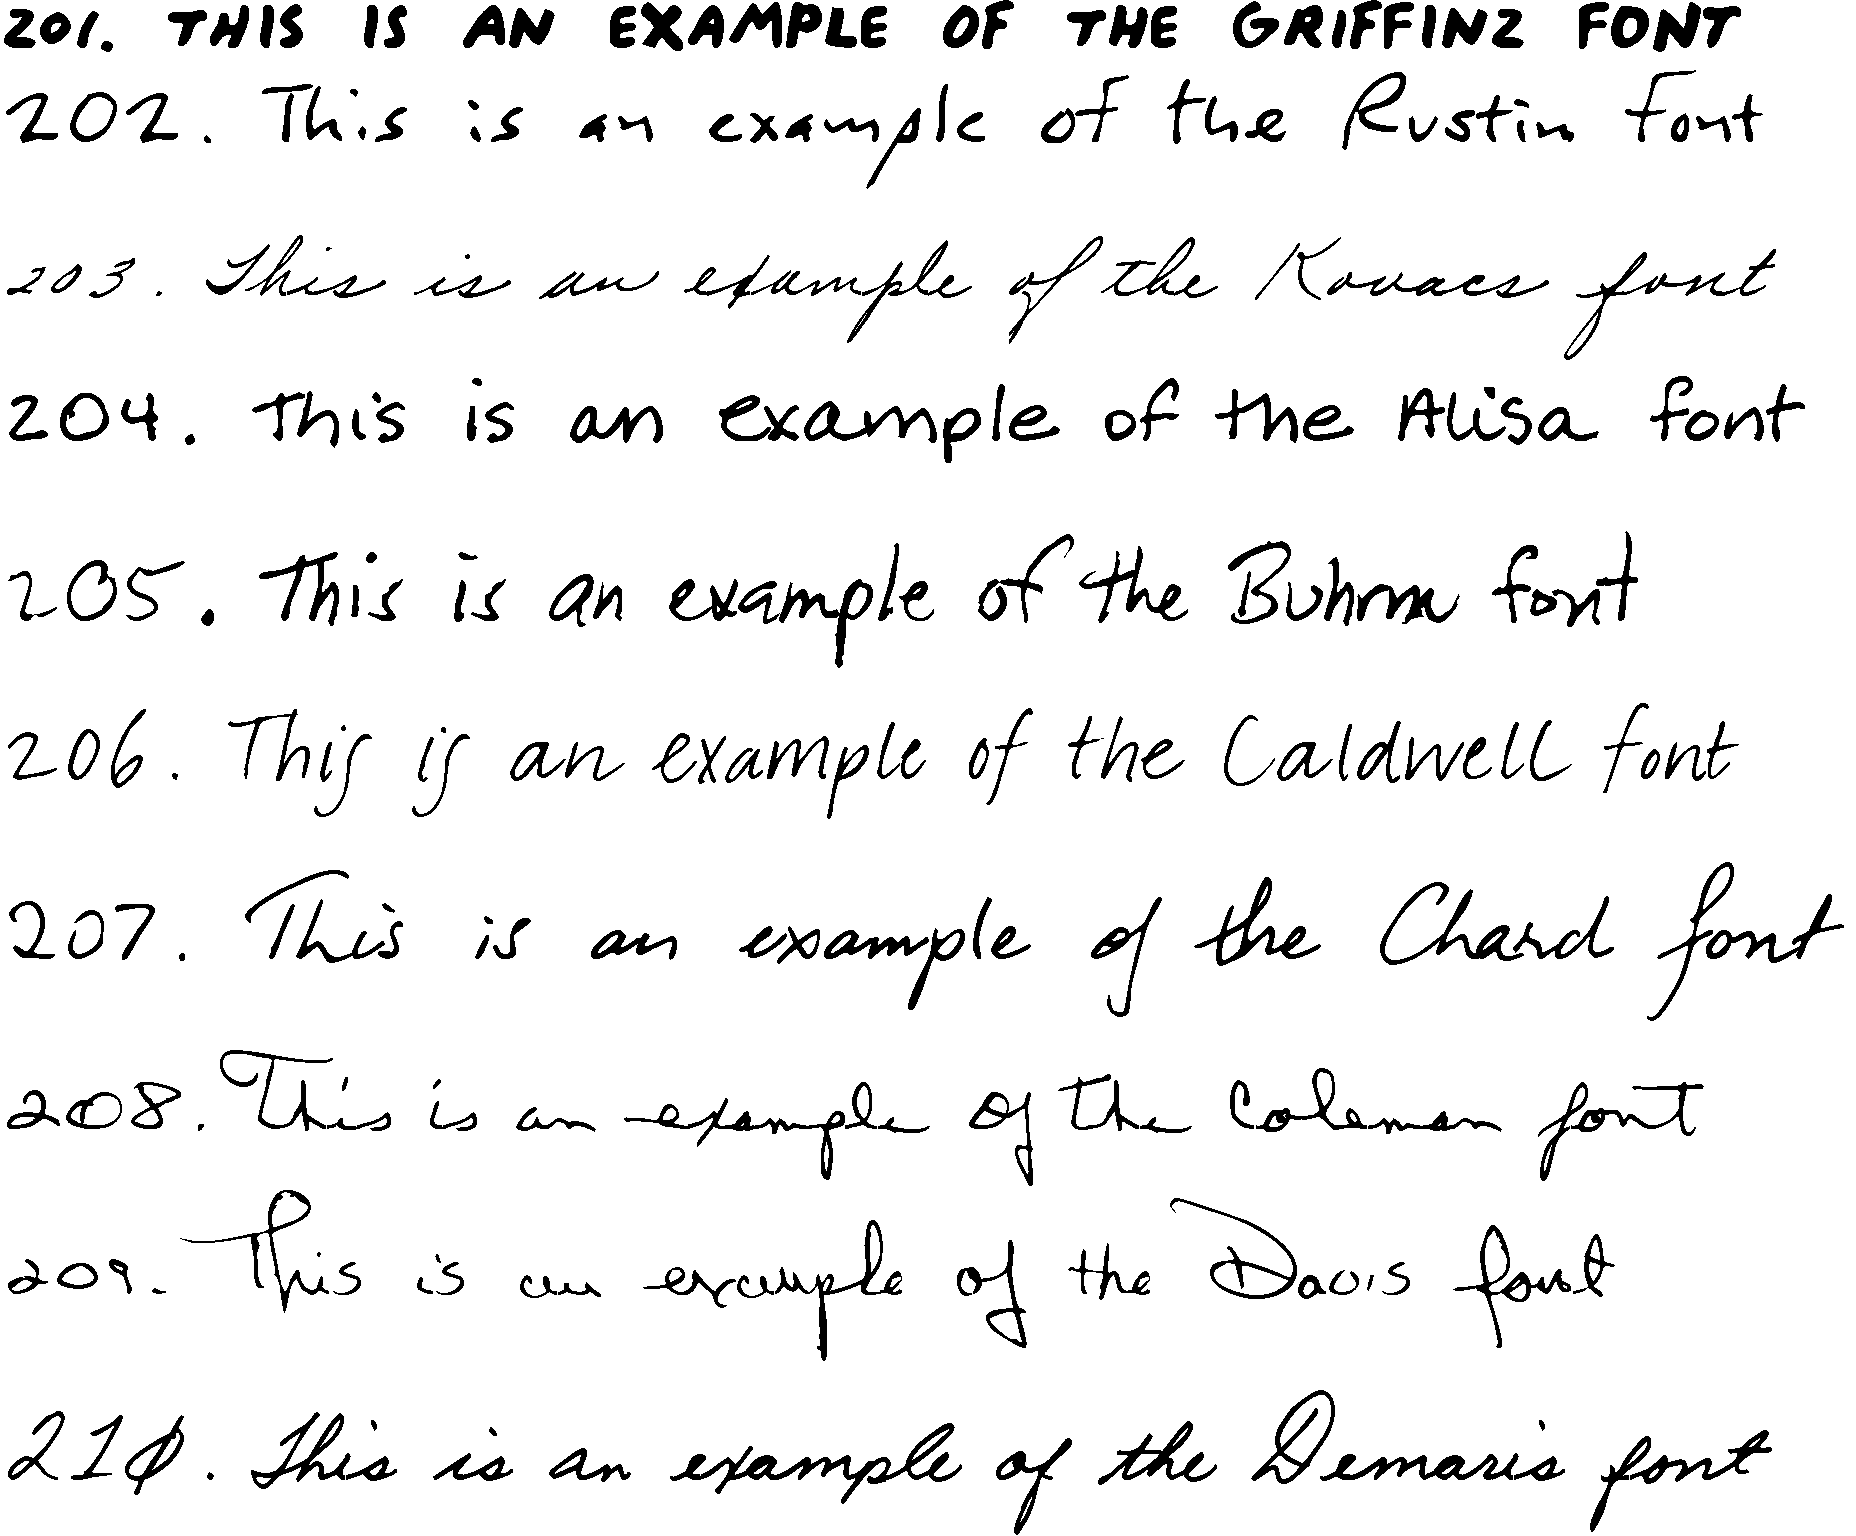 201. THIS IS AN EXAMPLE OF THE GRIFFINZ FONT
202. This is an example of the Rustin font
203. This is an example of the Kovacs font
204. This is an example of the Alisa font
205. This is an example of the Buhrm font
206. This is an example of the Caldwell font
207. This is an example of the Chard font
208. This is an example of the Coleman font
209. This is an example of the Davis font
210. This is an example of the Demaris font